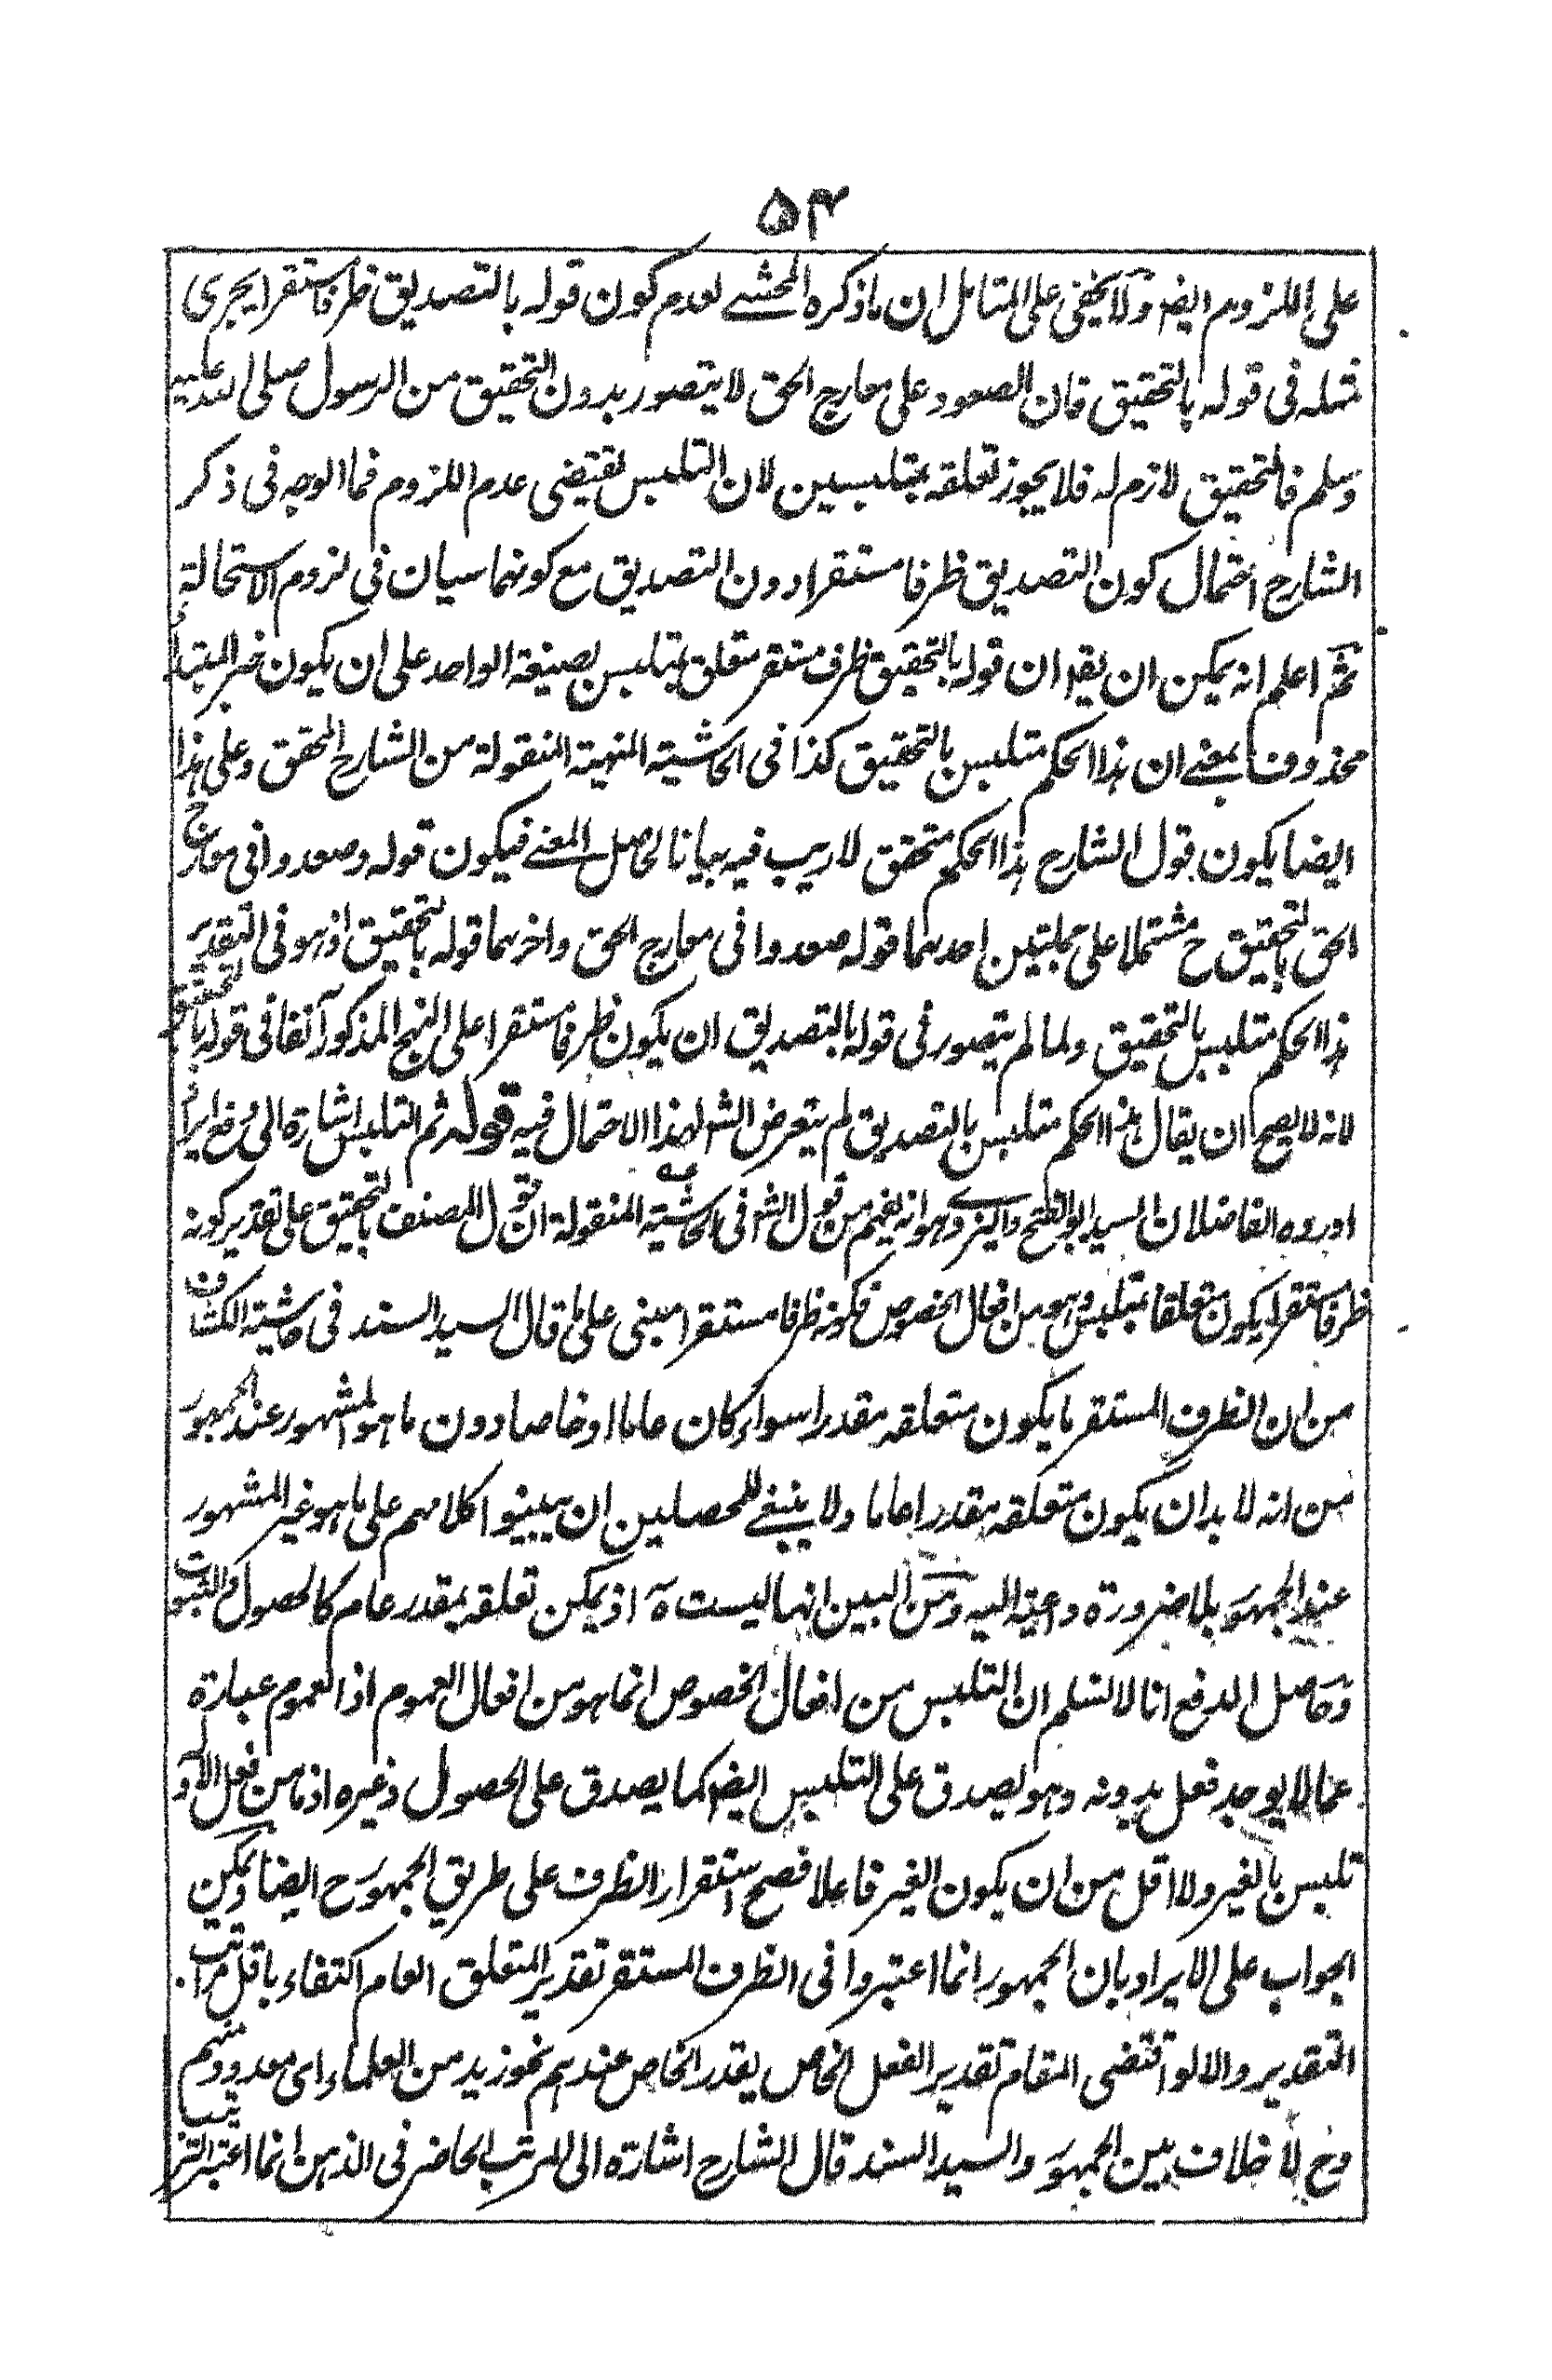 ۵۴
على اللزوم ايضا ولا يخفى على المتامل ان ما ذكره المحشے لعدم كون قوله بالتصديق ظرفا مستقرا يجرى
مثله فى قوله بالتحقيق فان الصعود على معارج الحق لا يتصور بدون التحقيق من الرسول صلى الله عليه
وسلم فالتحقيق لازم له فلا يجوز تعلقه بمتلبسين لان التلبس يقتضى عدم اللزوم فما الوجه فى ذكر
الشارح احتمال كون التصديق ظرفا مستقرا دون التصديق مع كونهما سيان فى لزوم الاستحالة
ثم اعلم انه يمكن ان يقم ان قوله بالتحقيق ظرف مستقر متعلق بمتلبس بصيغة الواحد على ان يكون خبر المبتدأ
محذوف بمعنے ان هذا الحكم متلبس بالتحقيق كذا فى الحاشية المنهية المنقولة من الشارح المحقق وعلى هذا
ايضا يكون قول الشارح هذا الحكم متحقق لا ريب فيه بيانا لحاصل المعنے فيكون قوله وصعدوا فى معارج
الحق بالتحقيق ح مشتملا على جملتين احدهما قوله صعدوا فى معارج الحق واخرهما قوله بالتحقيق اذ هو فى التقدير
هذا الحكم متلبس بالتحقيق ولما لم يتصور فى قوله بالتصديق ان يكون ظرفا مستقرا على النهج المذكور آنفا فى قوله بالتحقيق
لانه لا يصح ان يقال هذا الحكم متلبس بالتصديق لم يتعرض الش لهذا الاحتمال فيه قوله ثم التلبس اشارة الى دفع ايراد
اورده الفاضلان السيد ابو الفتح واليزدے وهو انه يفهم من قول الش فى الحاشية المنقولة ان قول المصنف بالتحقيق على تقدير كونه
ظرفا مستقرا يكون متعلقا بمتلبس وهو من افعال الخصوص فكونه ظرفا مستقرا مبنى على ما قال السيد السند فى حاشية الكشاف
من ان الظرف المستقر ما يكون متعلقه مقدرا سواء كان عاما او خاصا دون ما هو المشهور عند الجمهور
من انه لا بد ان يكون متعلقه مقدرا عاما ولا ينبغے للمحصلين ان يبينوا كلامهم على ما هو غير المشهور
عند الجمهور بلا ضرورة داعية اليه ومن البين انها ليست ه اذ يمكن تعلقه بمقدر عام كالحصول والثبوت
وحاصل الدفع انا لا نسلم ان التلبس من افعال الخصوص انما هو من افعال العموم اذ العموم عبارة
عما لا يوجد فعل بدونه وهو يصدق على التلبس ايضا كما يصدق على الحصول وغيره اذ ما من فعل الا وله
تلبس بالغير ولا اقل من ان يكون الغير فاعلا فصح استقرار الظرف على طريق الجمهور ح ايضا ويمكن
الجواب على الايراد بان الجمهور انما اعتبروا فى الظرف المستقر تقدير المتعلق العام اكتفاء باقل مراتب
التقدير والا لو اقتضى المقام تقدير الفعل الخاص يقدر الخاص عندهم نحو زيد من العلماء اى معدود منهم
وح لا خلاف بين الجمهور والسيد السند قال الشارح اشارة الى المرتب الحاضر فى الذهن انما اعتبر الترتيب